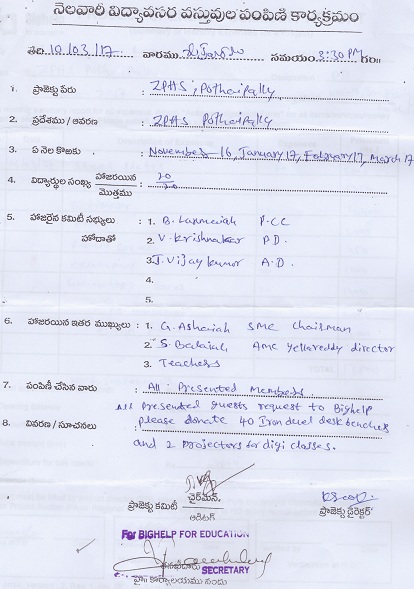 నెలవారీ విద్యావసర వస్తువుల పంపిణి కార్యక్రమం
తేది 10/03/17 వారము సమయం 3:30 PM గం॥
1. ప్రాజెక్టు పేరు : ZPHS, Pothaipally
2. ప్రదేశము / ఆవరణ : ZPHS Pothaipally
3. ఏ నెల కొఱకు : November-16, January 17, February 17, March 17
4. విద్యార్థుల సంఖ్య హాజరయిన / మొత్తము : 20/20
5. హాజరైన కమిటీ సభ్యులు : 1. B. Laxmaiah P.CC
హోదాతో 2. V. Krishnakar P.D.
3. J. Vijay kumar A.D.
4.
5.
6. హాజరయిన ఇతర ముఖ్యులు : 1. G. Ashaiah SMC Chairman
2. S. Balaiah AMC yellareddy director
3. Teachers
7. పంపిణీ చేసిన వారు : All : Presented Members
All Presented guests request to Bighelp
8. వివరణ / సూచనలు : please donate 40 Iron duel desk benches
and 2 Projectors for digi classes.
ప్రాజెక్టు కమిటీ చైర్‌మేన్, ప్రాజెక్టు డైరెక్టర్
ఆడిటర్
For BIGHELP FOR EDUCATION
SECRETARY
హై॥ కార్యాలయము నందు